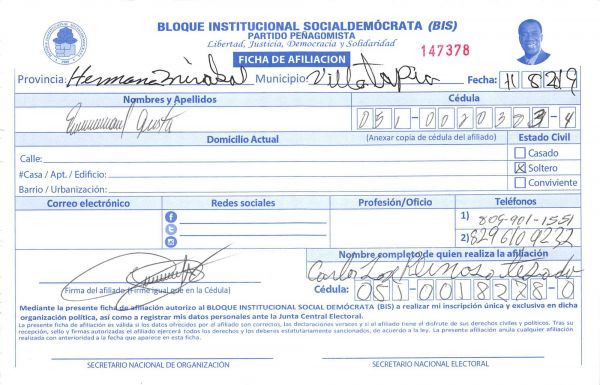 BLOQUE INSTITUCIONAL SOCIALDEMÓCRATA (BIS)
PARTIDO PEÑAGOMISTA
Libertad, Justicia, Democracia y Solidaridad
FICHA DE AFILIACION
147378
Provincia: Hermana mirabal Municipio: Villa tapia Fecha:
Nombres y Apellidos Cédula
051-0020323-4
Domicilio Actual (Anexar copia de cédula del afiliado) Estado Civil
Calle:
#Casa / Apt. / Edificio:
Barrio / Urbanización:
Casado
X Soltero
Conviviente
Correo electrónico Redes sociales Profesión/Oficio Teléfonos
1) 809-901-1551
2) 8296109232
Firma del afiliado (Firme igual que en la Cédula)
Nombre completo de quien realiza la afiliación
Carlos
Cédula: 051-0018288-0
Mediante la presente ficha de afiliación autorizo al BLOQUE INSTITUCIONAL SOCIAL DEMÓCRATA (BIS) a realizar mi inscripción única y exclusiva en dicha
organización política, así como a registrar mis datos personales ante la Junta Central Electoral.
La presente ficha de afiliación es válida si los datos ofrecidos por el afiliado son correctos, las declaraciones versos y si el afiliado tiene el disfrute de sus derechos civiles y políticos. Tras su
recepción, sello y firmas autorizadas el afiliado ejercerá todos los derechos y los deberes estatutariamente sancionados, de acuerdo a la ley. La presente afiliación anula cualquier afiliación
realizada con anterioridad a la fecha que aparece en esta ficha.
SECRETARIO NACIONAL DE ORGANIZACIÓN SECRETARIO NACIONAL ELECTORAL